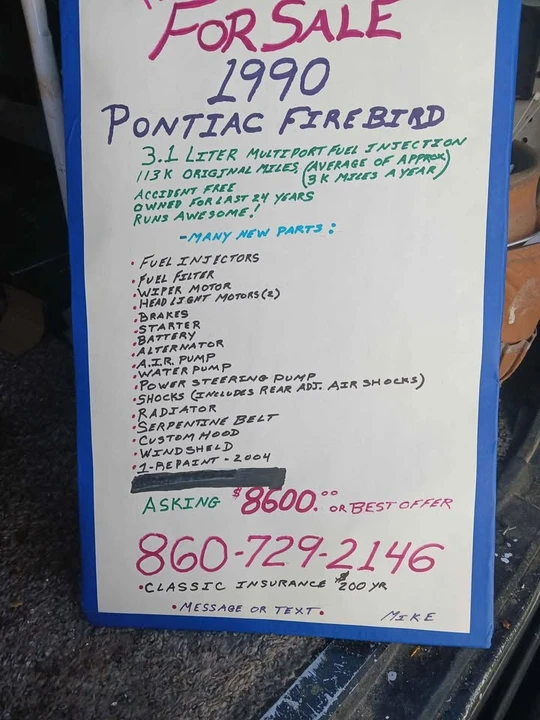 FOR SALE
1990
PONTIAC FIREBIRD
3.1 LITER MULTIPORT FUEL INJECTION
113K ORIGINAL MILES (AVERAGE OF APPROX
3K MILES A YEAR)
ACCIDENT FREE
OWNED FOR LAST 24 YEARS
RUNS AWESOME!
-MANY NEW PARTS:
• FUEL INJECTORS
• FUEL FILTER
• WIPER MOTOR
• HEAD LIGHT MOTORS (2)
• BRAKES
• STARTER
• BATTERY
• ALTERNATOR
• A.I.R. PUMP
• WATER PUMP
• POWER STEERING PUMP
• SHOCKS (INCLUDES REAR ADJ. AIR SHOCKS)
• RADIATOR
• SERPENTINE BELT
• CUSTOM HOOD
• WINDSHELD
• 1-REPAINT - 2004
ASKING $8600.00 OR BEST OFFER
860-729-2146
• CLASSIC INSURANCE $200 YR
• MESSAGE OR TEXT •
MIKE